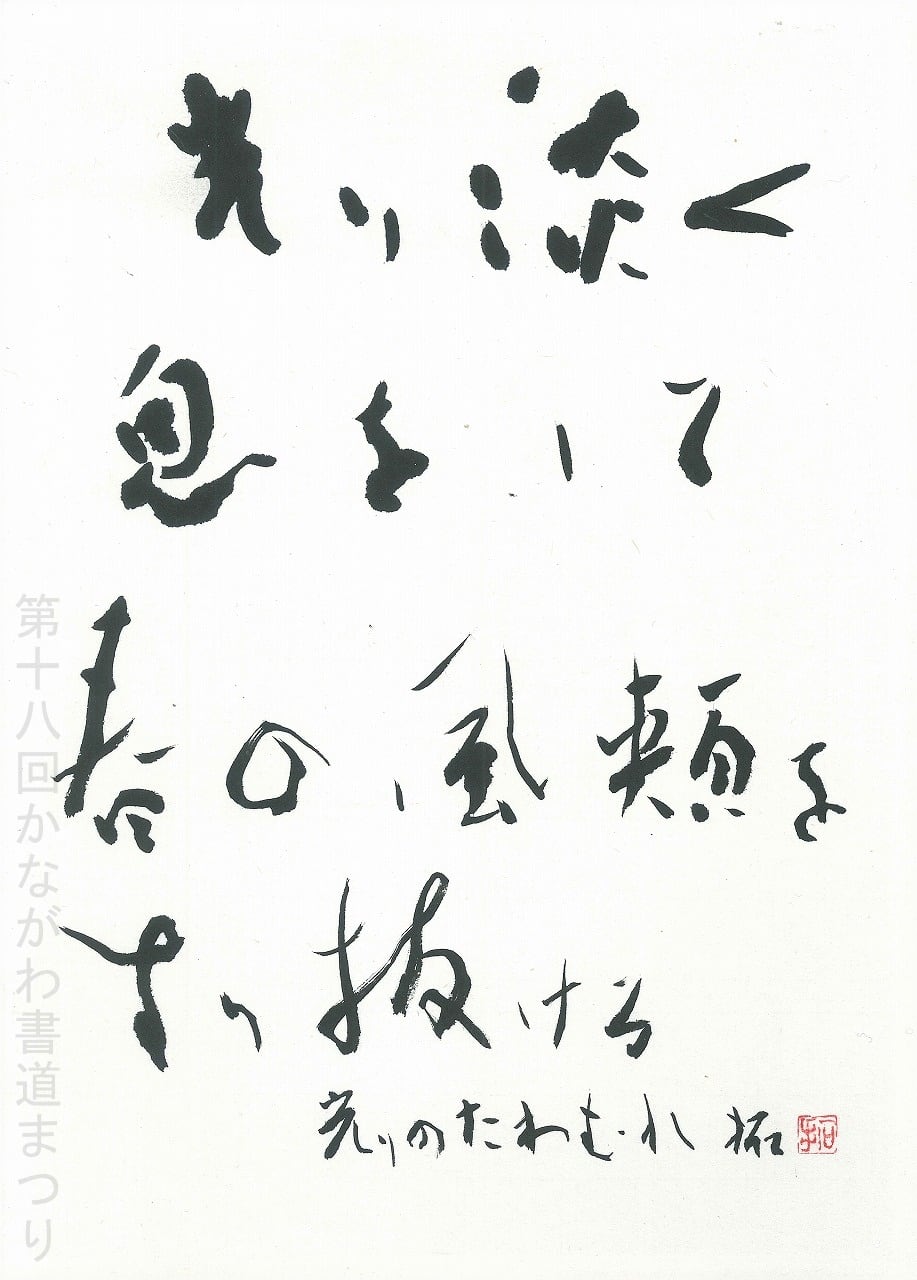 光り淡く
息をして
春の風頬を
すり抜ける
光りのたわむれ 拓
第十八回かながわ書道まつり